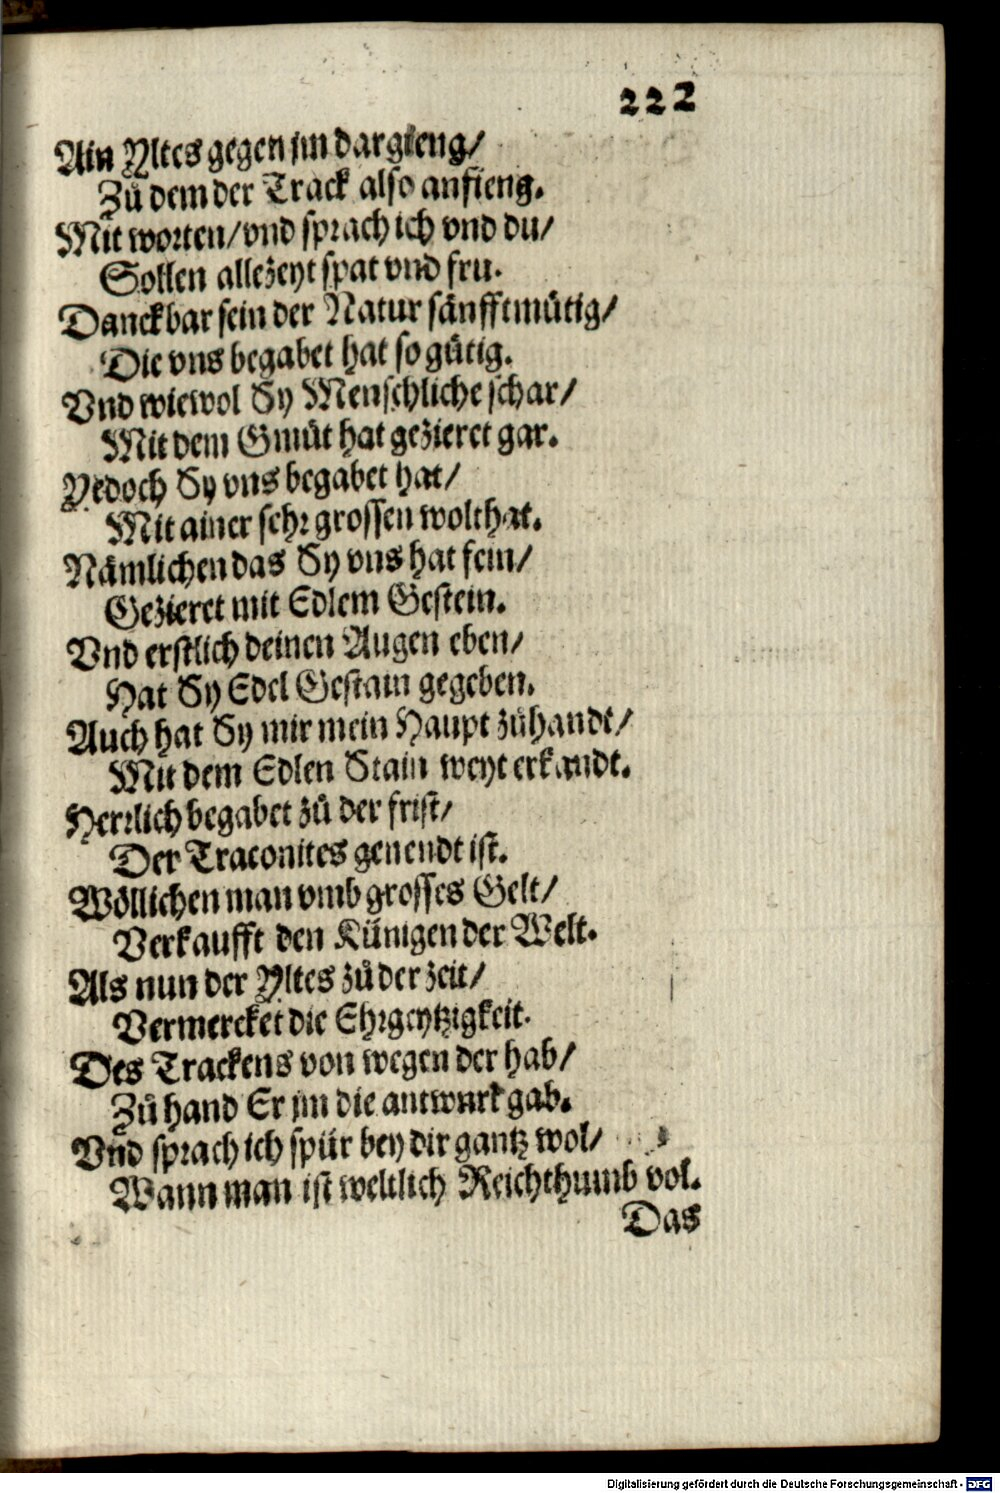 222
Ain Yltes gegen jm dargieng/
Zů dem der Track also anfieng.
Mit worten/vnd sprach ich vnd du/
Sollen allezeyt spat vnd fru.
Danckbar sein der Natur sänfftmütig/
Die vns begabet hat so gütig.
Vnd wiewol Sy Menschliche schar/
Mit dem Gmüt hat gezieret gar.
Yedoch Sy vns begabet hat/
Mit ainer sehr grossen wolthat.
Nämlichen das Sy vns hat fein/
Gezieret mit Edlem Gestein.
Vnd erstlich deinen Augen eben/
Hat Sy Edel Gestain gegeben.
Auch hat Sy mir mein Haupt zůhandt/
Mit dem Edlen Stain weyt erkandt.
Herrlich begabet zů der frist/
Der Traconites genendt ist.
Wöllichen man vmb grosses Gelt/
Verkaufft den Künigen der Welt.
Als nun der Yltes zů der zeit/
Vermercket die Ehrgeytzigkeit.
Des Trackens von wegen der hab/
Zů hand Er jm die antwurt gab.
Vnd sprach ich spür bey dir gantz wol/
Wann man ist weltlich Reichthumb vol.
Das
Digitalisierung gefördert durch die Deutsche Forschungsgemeinschaft - DFG